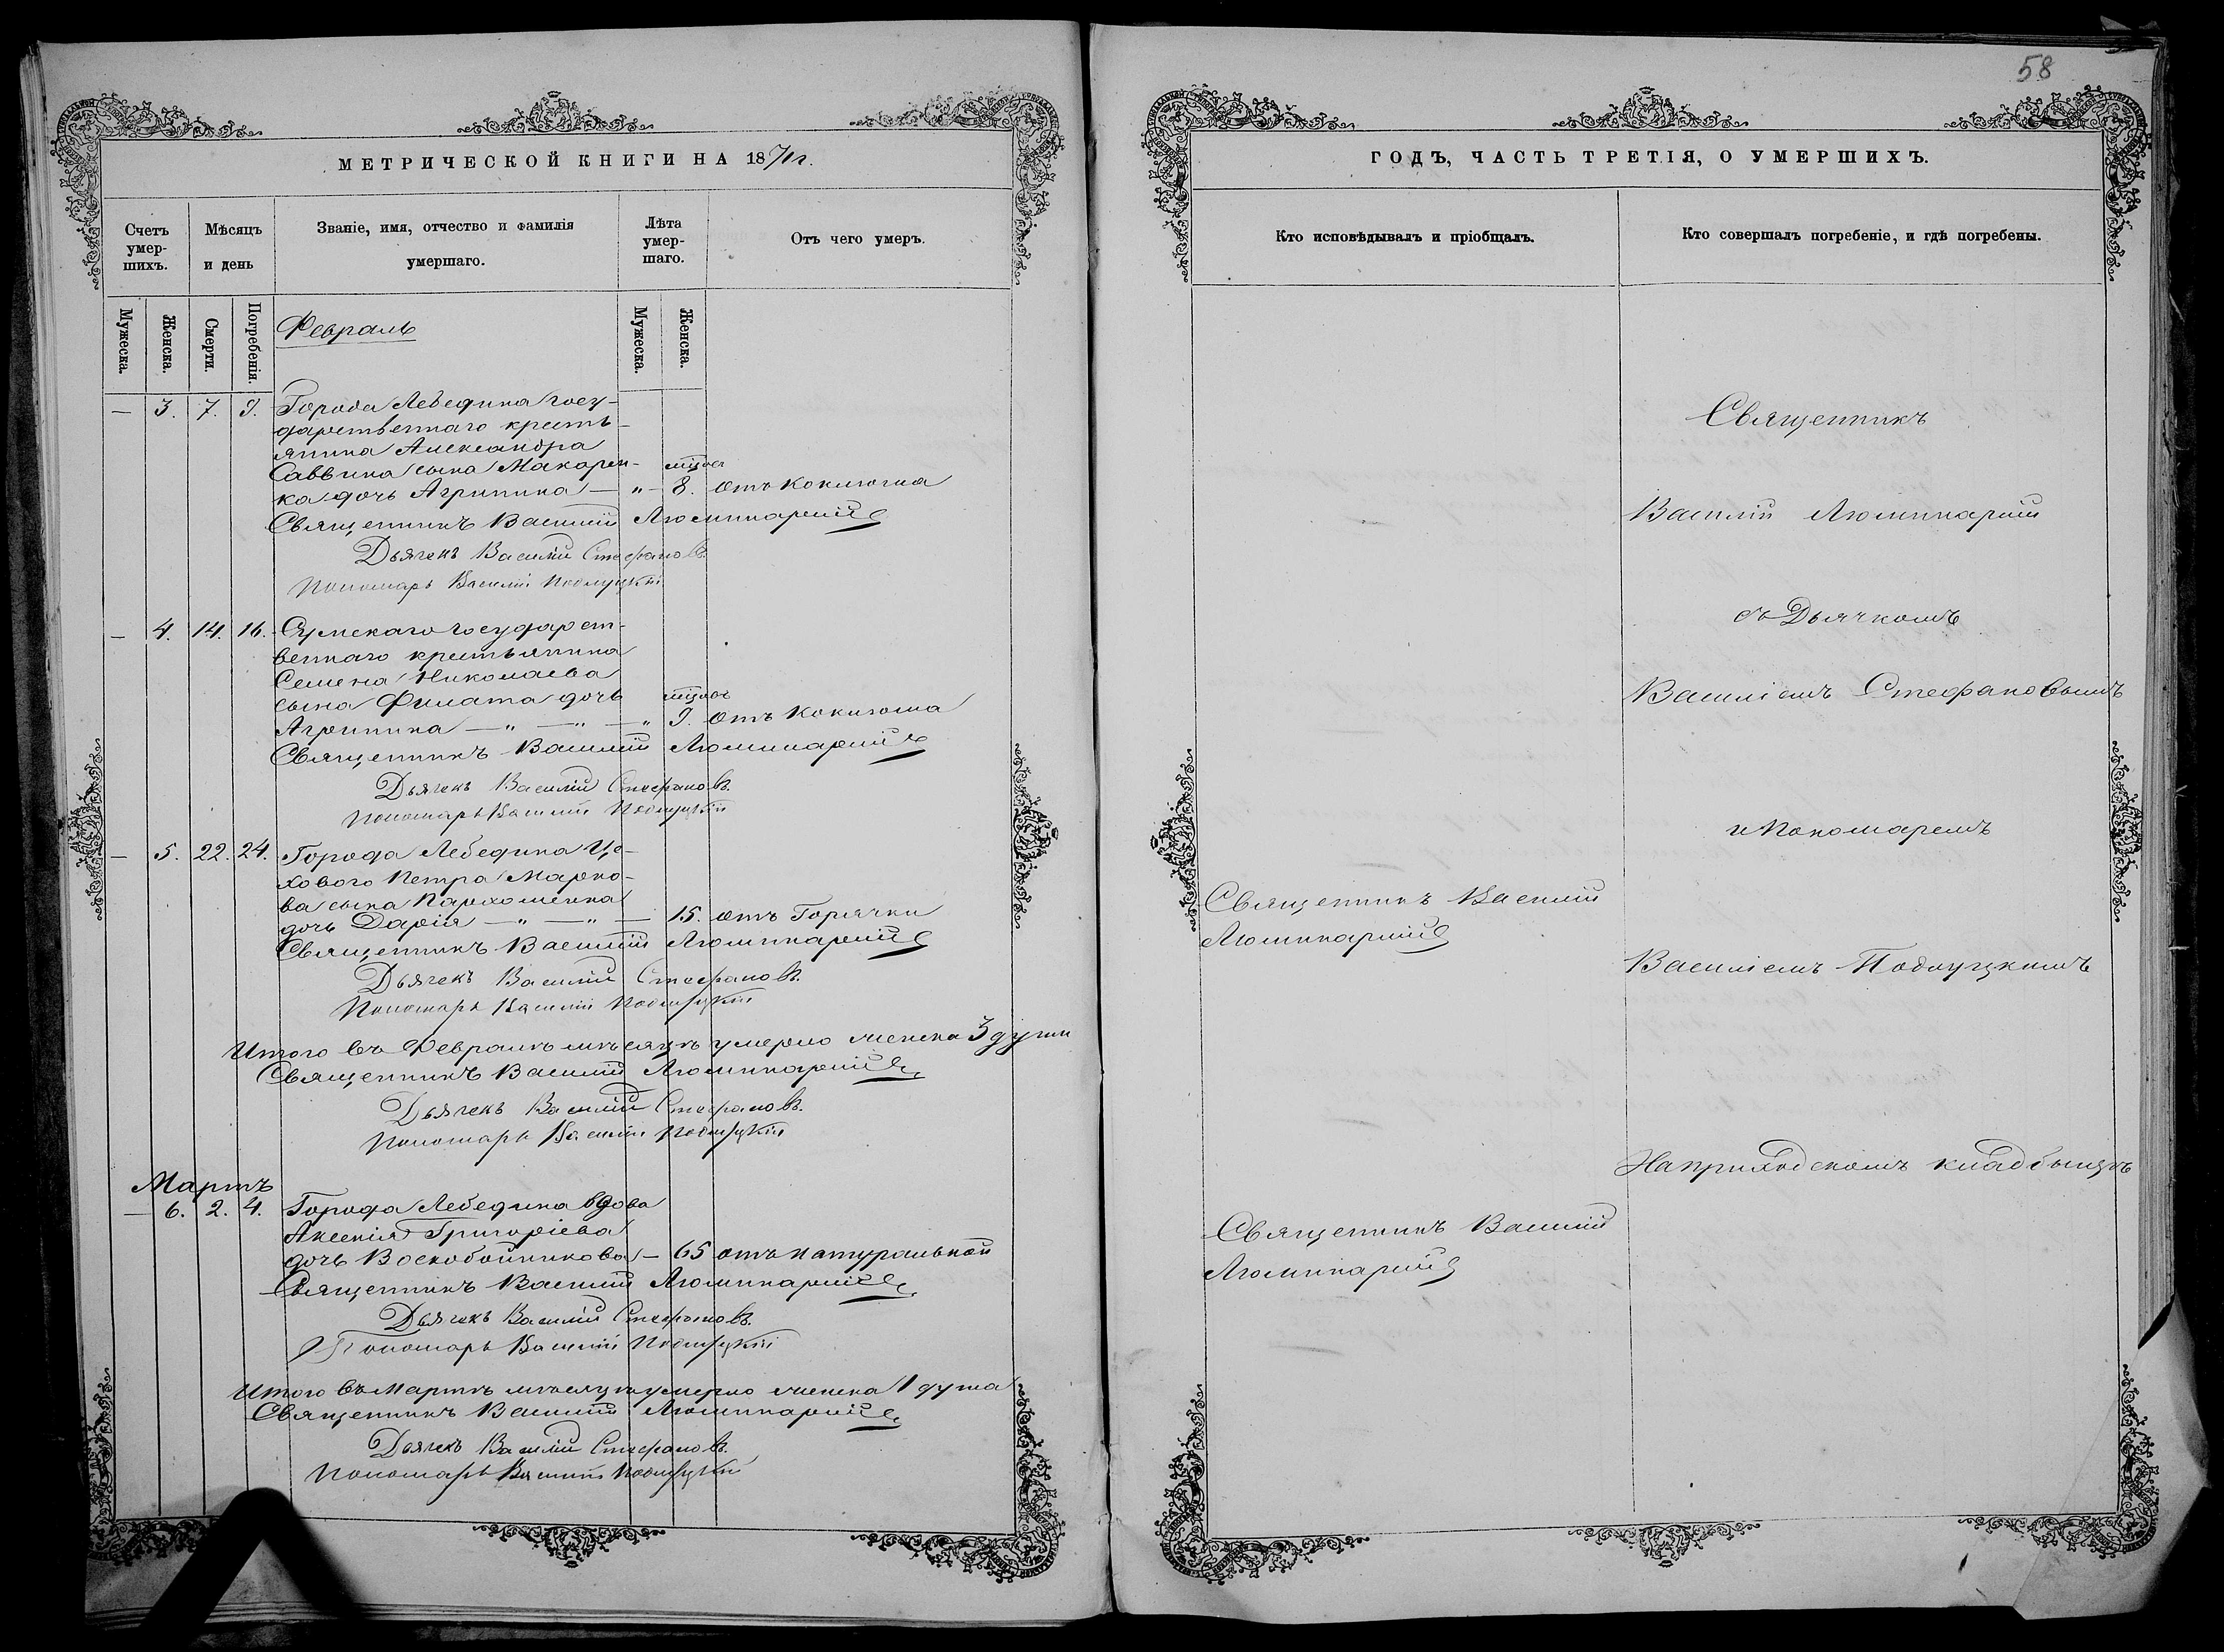 58
МЕТРИЧЕСКОЙ КНИГИ НА 1871 г.
Счетъ умер-шихъ.
Мѣсяцъ и день
Званіе, имя, отчество и фамилія умершаго.
Лѣта умер-шаго.
Отъ чего умеръ.
Мужеска.
Женска.
Смерти.
Погребенія.
Мужеска.
Женска.
Февраль
— 3. 7. 9. Города Лебедина госу-
дарственнаго кресть-
янина Александра
Саввина сына Макарен- мцовъ
ка дочь Агрипина — „ — 8. отъ Коклюша
Священникъ Василій Люминарскій
Дьячекъ Василій Стефановъ.
Пономарь Василій Подлуцкій
— 4. 14. 16. Сумскаго государст-
веннаго крестьянина
Семена Николаева
сына Филата дочь мцовъ
Агрипина — „ — „ — „ 9. отъ Коклюша
Священникъ Василій Люминарскій
Дьячекъ Василій Стефановъ.
Пономарь Василій Подлуцкій
— 5. 22. 24. Города Лебедина Це-
хового Петра Марко-
ва сына Пархоменка
дочь Дарія — „ — „ — 15. отъ Горячки
Священникъ Василій Люминарскій
Дьячекъ Василій Стефановъ.
Пономарь Василій Подлуцкій
Итого въ Февралѣ мѣсяцѣ умерло женска 3 души
Священникъ Василій Люминарскій
Дьячекъ Василій Стефановъ.
Пономарь Василій Подлуцкій
Мартъ
— 6. 2. 4. Города Лебедина вдова
Аксенія Григоріева
дочь Воскобойникова — 65 отъ натуральной
Священникъ Василій Люминарскій
Дьячекъ Василій Стефановъ.
Пономарь Василій Подлуцкій
Итого въ Мартѣ мѣсяцѣ умерло женска 1 душа
Священникъ Василій Люминарскій
Дьячекъ Василій Стефановъ.
Пономарь Василій Подлуцкій
ГОДЪ, ЧАСТЬ ТРЕТІЯ, О УМЕРШИХЪ.
Кто исповѣдывалъ и пріобщалъ.
Кто совершалъ погребеніе, и гдѣ погребены.
Священникъ
Василій Люминарскій
съ Дьячкомъ
Василіемъ Стефановымъ
и Пономаремъ
Священникъ Василій
Люминарскій
Василіемъ Подлуцкимъ
На приходскомъ кладбищѣ
Священникъ Василій
Люминарскій